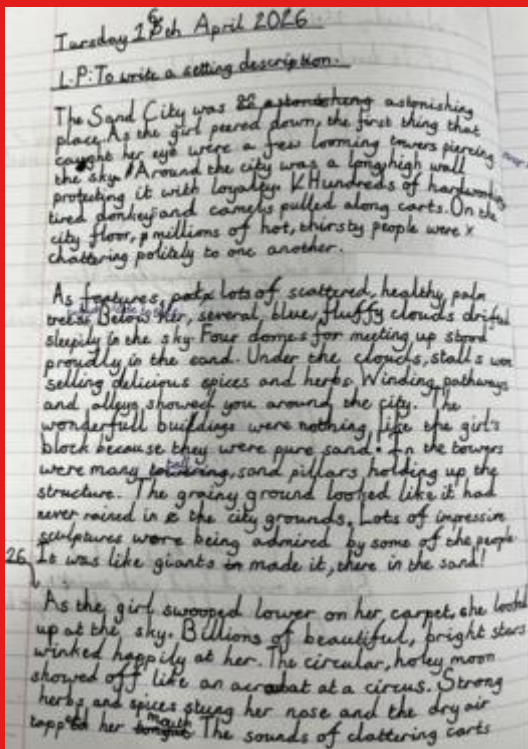 Tuesday 16th April 2026
L.P: To write a setting description.
The Sand City was astonishing
place. As the girl peered down, the first thing that
caught her eye were a few looming towers piercing
the sky. Around the city was a long, high wall
protecting it with loyalty. Hundreds of hardworking
tired donkey and camels pulled along carts. On the
city floor, millions of hot, thirsty people were
chattering politely to one another.
As features, lots of scattered, healthy palm
trees. Below her, several, blue, fluffy clouds drifted
sleepily in the sky. Four domes for meeting up stood
proudly in the sand. Under the clouds, stalls were
selling delicious spices and herbs. Winding, pathways
and alleys, showed you around the city. The
wonderfull buildings were nothing like the girl's
block because they were pure sand. In the towers
were many tall, sand pillars holding up the
structure. The grainy ground looked like it had
never rained in the city grounds. Lots of impressive
sculptures were being admired by some of the people
26 It was like giants made it, there in the sand!
As the girl swooped lower on her carpet, she looked
up at the sky. Billions of beautiful, bright stars
winked happily at her. The circular, holey moon
showed off like an acrobat at a circus. Strong
herbs and spices stung her nose and the dry air
tapped her mouth The sounds of clattering carts